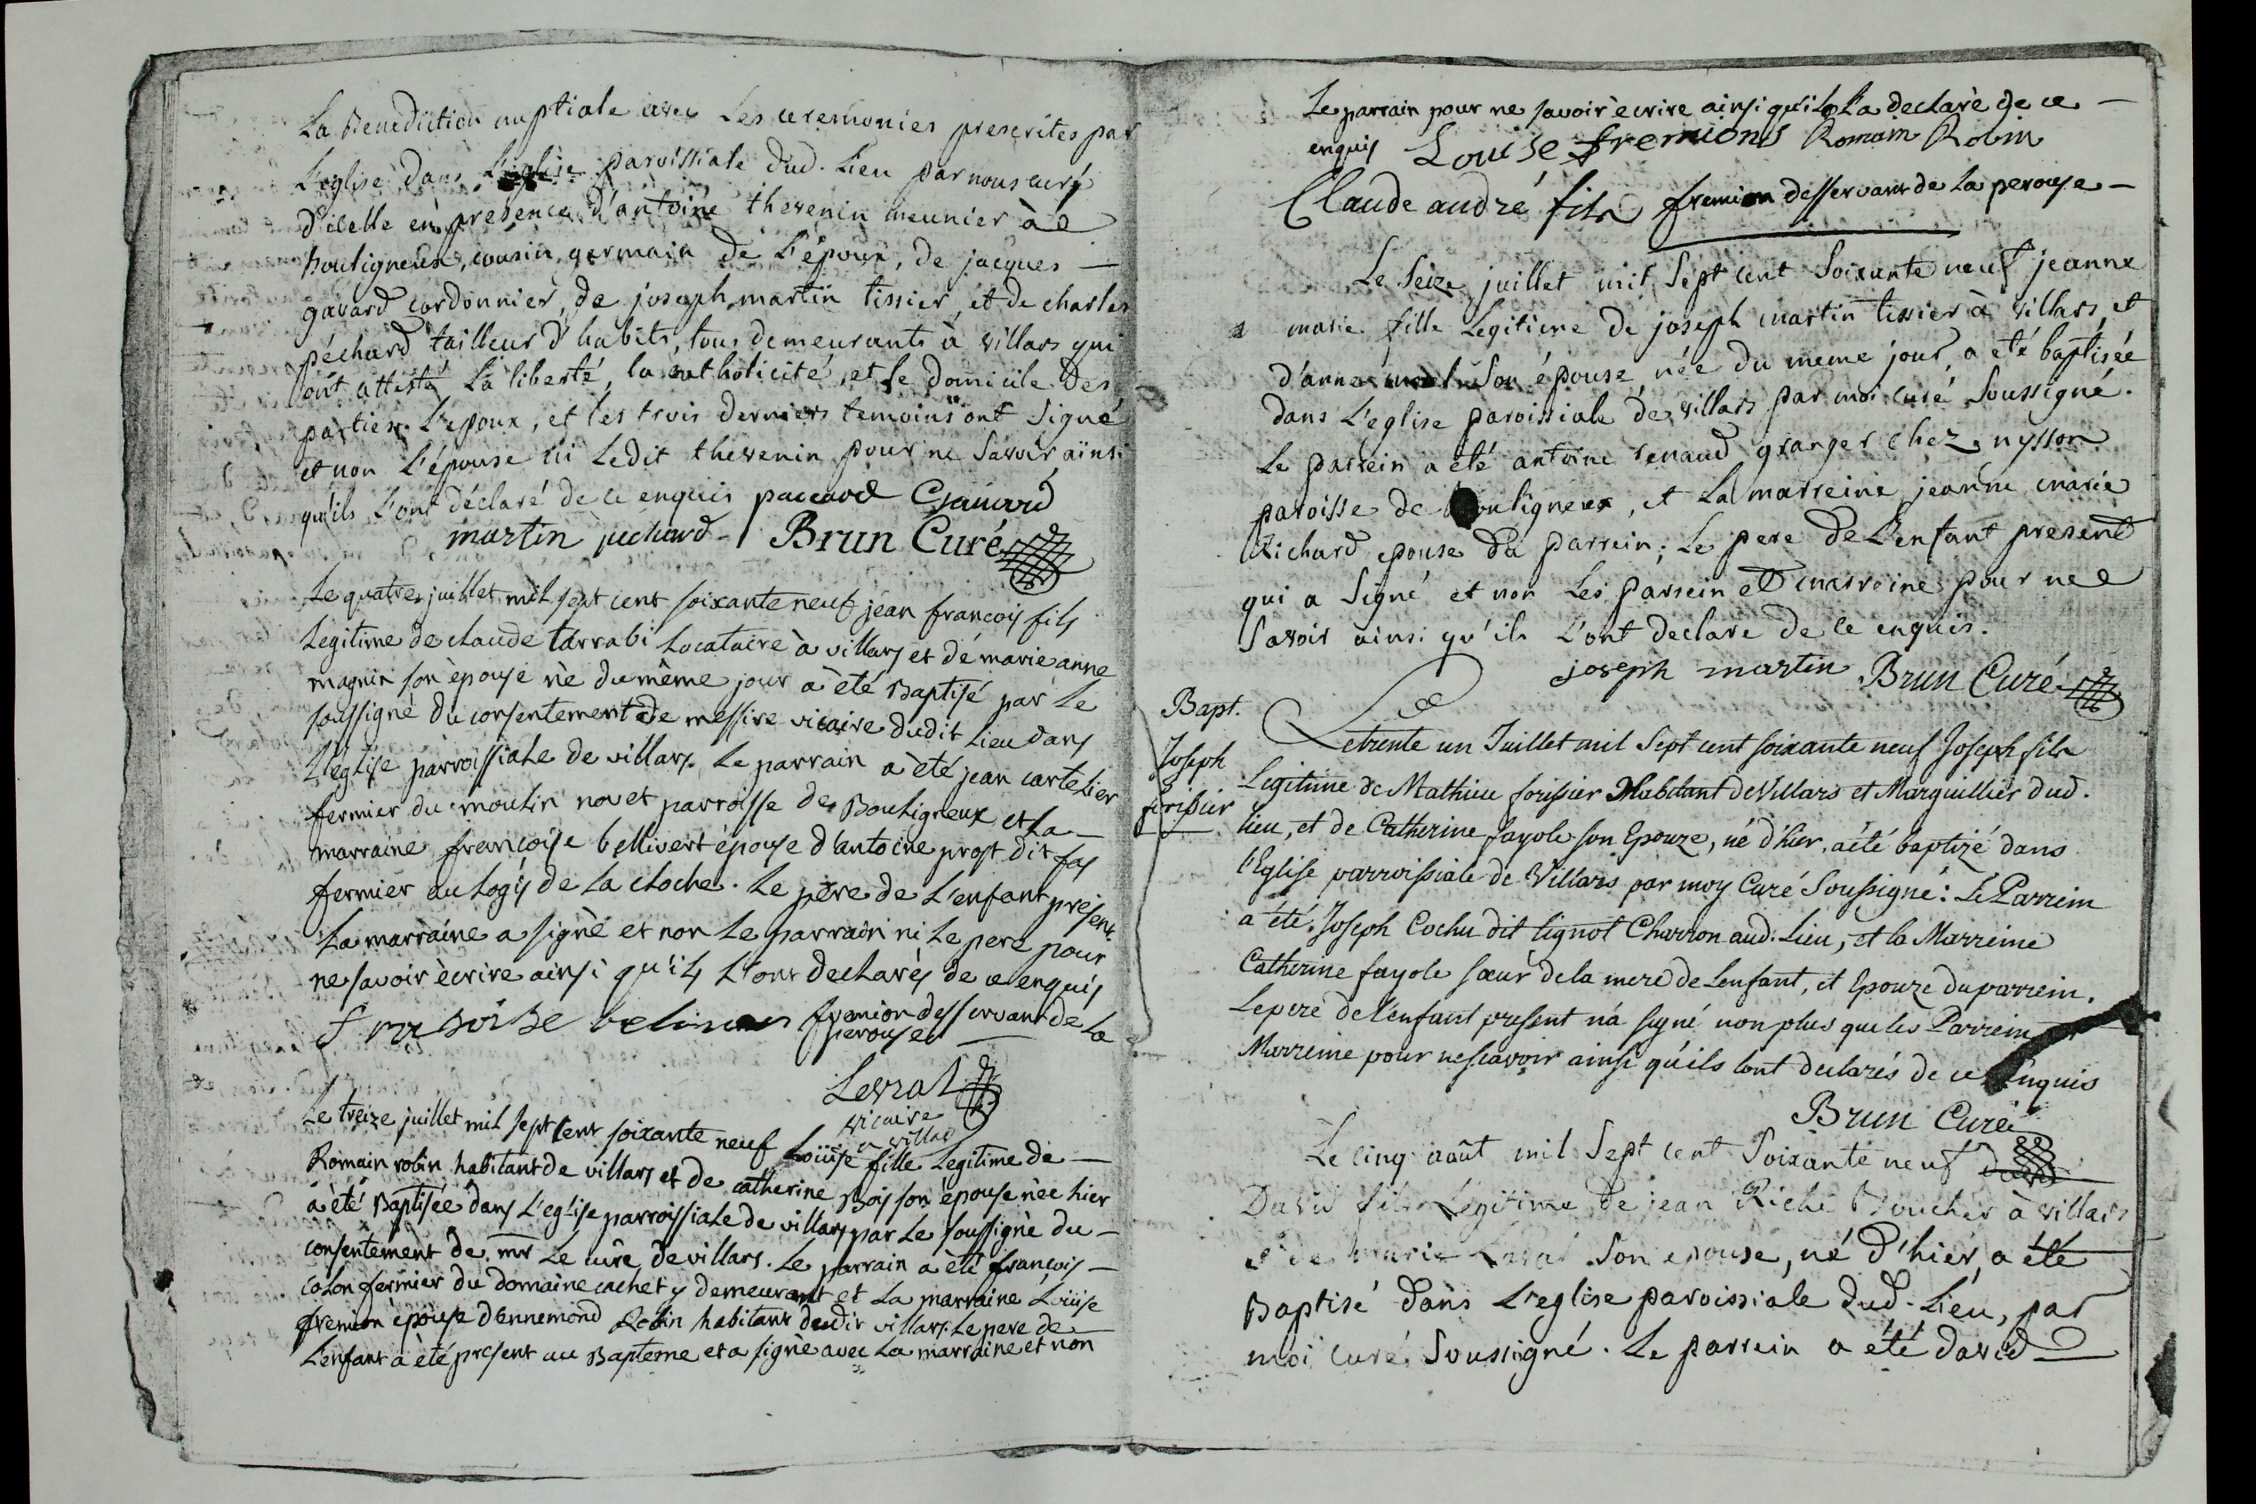 La Benediction nuptiale avec Les ceremonies prescrites par
L'eglise dans L'eglise paroissiale dud. Lieu par nous curé
d'icelle en presence d'antoine thevenin meunier à
Bouligneux, cousin germain de L'époux, de jacques —
gavard cordonnier, de joseph martin tissier, et de charles
péchard tailleur d'habits, tous demeurants à villars qui
ont attesté La liberté, la catholicité, et le domicile des
parties. L'epoux, et les trois derniers temoins ont signé
et non L'épouse ni Ledit thevenin pour ne savoir ainsi
qu'ils L'ont déclaré de ce enquis paccard Gavard
martin pechard Brun Curé
Le quatre juillet mil sept cent soixante neuf jean françois fils
Legitime de claude tarrabi Locataire à villars et de marie anne
magnin son èpouse nè du même jour a èté Baptisé par Le
soussignè du consentement de messire vicaire dudit Lieu dans
L'eglise parroissiale de villars. Le parrain a èté jean cartelier
fermier du moulin novet parroisse de Bouligneux et La —
marraine françoise bellivert épouse d'antoine prost dit fas
fermier au Logis de La cloche. Le père de L'enfant présent.
La marraine a signè et non Le parrain ni Le pere pour
ne savoir ècrire ainsi qu'ils L'ont declarés de ce enquis
fransoise fremion desservant de La
perouse —
Levrat
vicaire
a villars
Le treize juillet mil sept cent soixante neuf Loüise fille Legitime de —
Romain robin habitant de villars et de catherine Bois son èpouse nèe hier
a èté Baptisée dans L'eglise parroissiale de villars par Le soussignè du —
consentement de mr Le curè de villars. Le parrain a èté françois —
colon fermier du domaine cachet y demeurant et La marraine Loüise
fremion èpouse d'ennemond Robin habitant dudit villars. Le pere de
L'enfant a èté present au Bapteme et a signè avec La marraine et non
Le parrain pour ne savoir ècrire ainsi qu'il L'a declaré de ce —
enquis Louise fremions Romain Robin
Claude andré fils fremion desservant de La perouse —
Le Seize juillet mil sept cent soixante neuf jeanne
marie fille Legitime de joseph martin tissier à villars, et
d'anne son épouse, née du meme jour a été baptisée
dans L'eglise paroissiale de villars par moi curé soussigné.
Le parrein a été antoine renaud granger chez nysson
paroisse de Bouligneux, et La marreine jeanne marie
Richard epouse du parrein; Le pere de L'enfant present
qui a signé et non Les parrein et marreine pour ne
savoir ainsi qu'ils L'ont declaré de ce enquis.
joseph martin Brun Curé
Bapt.
Joseph
forissier
Le trente un Juillet mil Sept cent soixante neuf Joseph fils
Legitime de Mathieu forissier Habitant de Villars et Marguillier dud.
lieu, et de Catherine fayole son Epouze, né d'hier, a été baptizé dans
l'Eglise parroissiale de Villars par moy Curé Soussigné: Le Parrein
a été Joseph Cochu dit lignot Charron aud. Lieu, et la Marreine
Catherine fayole sœur de la mere de Lenfant, et Epouze du parrein.
Le pere de l'enfant present n'a signé non plus que les Parrein et
Marreine pour ne scavoir ainsi qu'ils lont declarés de ce Enquis
Brun Curé
Le cinq août mil sept cent soixante neuf
David fils Legitime de jean Riche Boucher à villars
et de marie son epouse, né d'hier, a été
Baptisé dans L'eglise paroissiale dud. Lieu, par
moi curé soussigné. Le parrein a été david